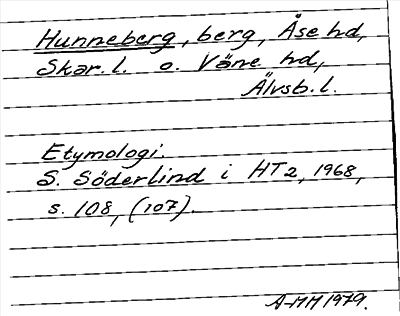 Hunneberg, berg, Åse hd,
Skar. l. o. Väne hd,
Älvsb. l.
Etymologi.
S. Söderlind i HT 2, 1968,
s. 108, (107).
A-MH 1979.